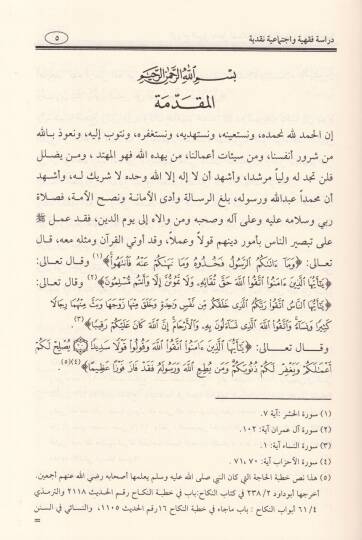 دراسة فقهية واجتماعية نقدية
٥
بسم الله الرحمن الرحيم
المقدّمة
إن الحمد لله نحمده، ونستعينه، ونستهديه، ونستغفره، ونتوب إليه، ونعوذ بالله
من شرور أنفسنا، ومن سيئات أعمالنا، من يهده الله فهو المهتد، ومن يضلل
فلن تجد له ولياً مرشدا، وأشهد أن لا إله إلا الله وحده لا شريك لـه، وأشهد
أن محمداً عبدالله ورسوله، بلغ الرسالة وأدى الأمانة ونصح الأمة، فصلاة
ربي وسلامه عليه وعلى آله وصحبه ومن والاه إلى يوم الدين، فقد عمل ﷺ
على تبصير الناس بأمور دينهم قولاً وعملاً، وقد أوتي القرآن ومثله معه، قال
تعالى: ﴿وَمَآ ءَاتَىٰكُمُ ٱلرَّسُولُ فَخُذُوهُ وَمَا نَهَىٰكُمْ عَنْهُ فَٱنتَهُوا۟﴾(١) وقال تعالى:
﴿يَـٰٓأَيُّهَا ٱلَّذِينَ ءَامَنُوا۟ ٱتَّقُوا۟ ٱللَّهَ حَقَّ تُقَاتِهِۦ وَلَا تَمُوتُنَّ إِلَّا وَأَنتُم مُّسْلِمُونَ﴾(٢) وقال تعالى:
﴿يَـٰٓأَيُّهَا ٱلنَّاسُ ٱتَّقُوا۟ رَبَّكُمُ ٱلَّذِى خَلَقَكُم مِّن نَّفْسٍ وَٰحِدَةٍ وَخَلَقَ مِنْهَا زَوْجَهَا وَبَثَّ مِنْهُمَا رِجَالًا
كَثِيرًا وَنِسَآءً وَٱتَّقُوا۟ ٱللَّهَ ٱلَّذِى تَسَآءَلُونَ بِهِۦ وَٱلْأَرْحَامَ إِنَّ ٱللَّهَ كَانَ عَلَيْكُمْ رَقِيبًا﴾(٣).
وقـال تعـالى: ﴿يَـٰٓأَيُّهَا ٱلَّذِينَ ءَامَنُوا۟ ٱتَّقُوا۟ ٱللَّهَ وَقُولُوا۟ قَوْلًا سَدِيدًا ۝ يُصْلِحْ لَكُمْ
أَعْمَـٰلَكُمْ وَيَغْفِرْ لَكُمْ ذُنُوبَكُمْ وَمَن يُطِعِ ٱللَّهَ وَرَسُولَهُۥ فَقَدْ فَازَ فَوْزًا عَظِيمًا﴾(٤)(٥)
(١) سورة الحشر :آية ٧.
(٢) سورة آل عمران آية: ١٠٢.
(٣) سورة النساء آية: ١.
(٤) سورة الأحزاب آية: ٧٠،٧١.
(٥) هذا نص خطبة الحاجة التي كان النبي صلى الله عليه وسلم يعلمها أصحابه رضي الله عنهم أجمعين.
أخرجها أبوداود ٢٣٨/٢ في كتاب النكاح:باب في خطبة النكاح رقم الحديث ٢١١٨ والترمذي
٦١/٤ أبواب النكاح : باب ماجاء في خطبة النكاح ١٦رقم الحديث ١١٠٥، والنسائي في السنن
=